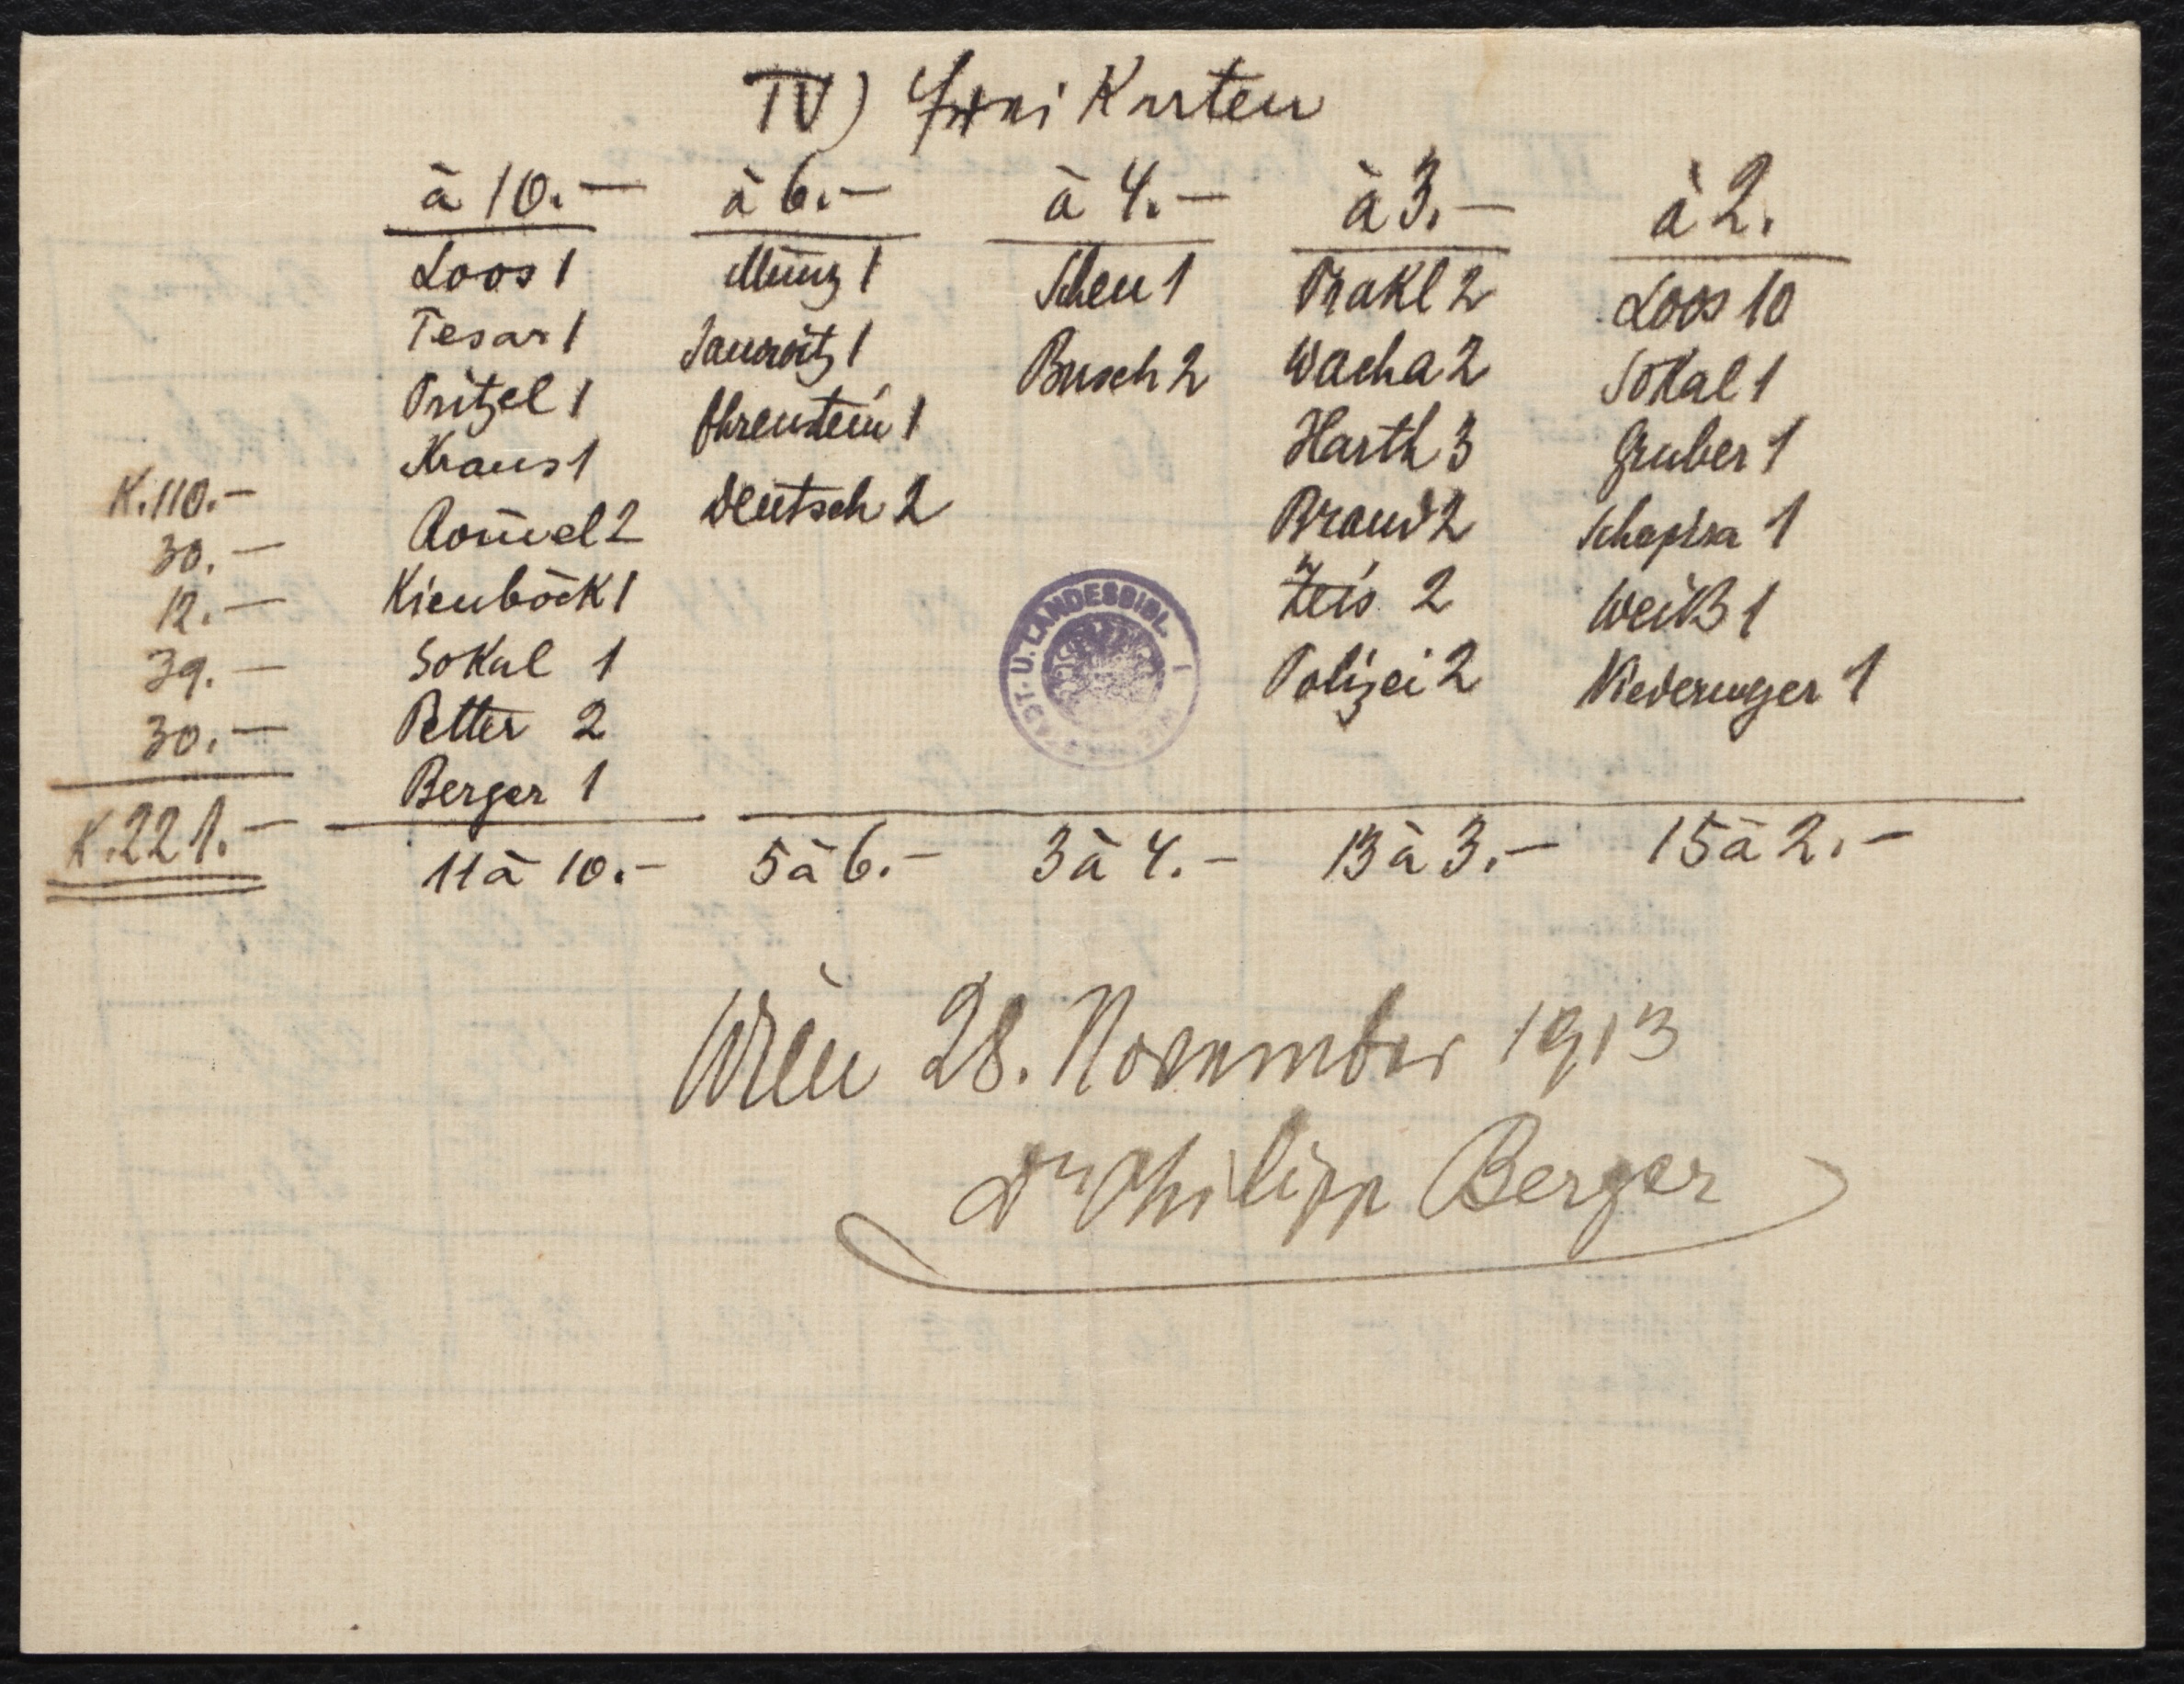 IV) Frei Karten
à 10.— à 6.— à 4.— à 3.— à 2.
Loos 1 Münz 1 Scheu 1 Trakl 2 Loos 10
Tesar 1 Janowitz 1 Busch 2 Wacha 2 Sokal 1
Pritzel 1 Ehrenstein 1 Harth 3 Gruber 1
Kraus 1 Deutsch 2 Brand 2 Schapira 1
K. 110.— 2
30.— Kienböck 1 Zeis 2 Weiß 1
12.— Sokal 1 Polizei 2 1
39.— Petter 2
30.— Berger 1
K. 221.— 11 à 10.— 5 à 6.— 3 à 4.— 13 à 3.— 15 à 2.—
U. LANDESBIBL.
Wien 28. November 1913
Dr Philipp Berger